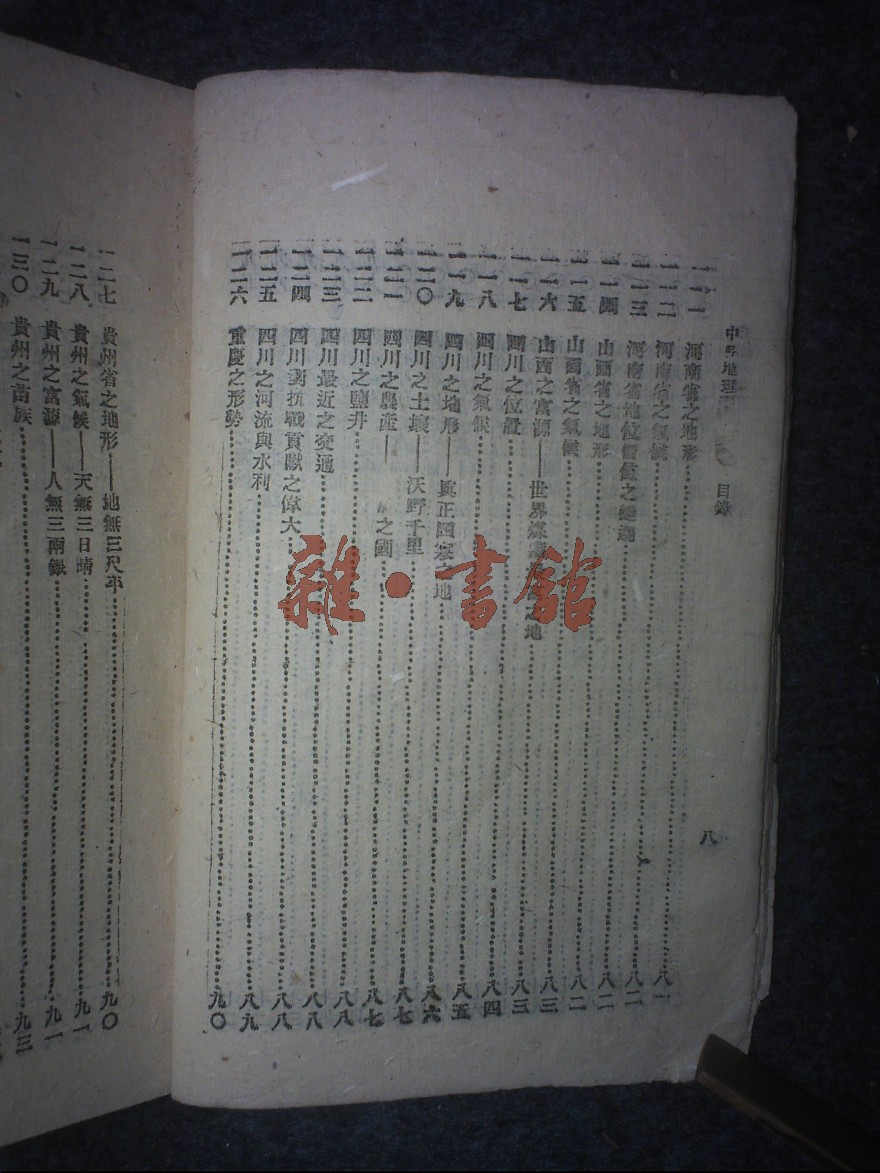 中 地理 目錄 八
一一一 河南省之地形 八一
一一二 河南省之氣候 八二
一一三 河南省地位價值之 八二
一一四 山西省之地形 八二
一一五 山西省之氣候 八三
一一六 山西之富源——世界煤 之地 八三
一一七 四川之位置 八四
一一八 四川之氣候 八五
一一九 四川之地形——眞正四塞之地 八六
一二〇 四川之土壤——沃野千里 八七
一二一 四川之農產—— 之國 八七
一二二 四川之鹽井 八八
一二三 四川最近之交通 八八
一二四 四川對抗戰貢獻之偉大 八八
一二五 四川之河流與水利 八九
一二六 重慶之形勢 九〇
一二七 貴州省之地形——地無三尺平 九〇
一二八 貴州之氣候——天無三日晴 九一
一二九 貴州之富源——人無三兩銀 九一
一三〇 貴州之苗族 九三
雜·書館